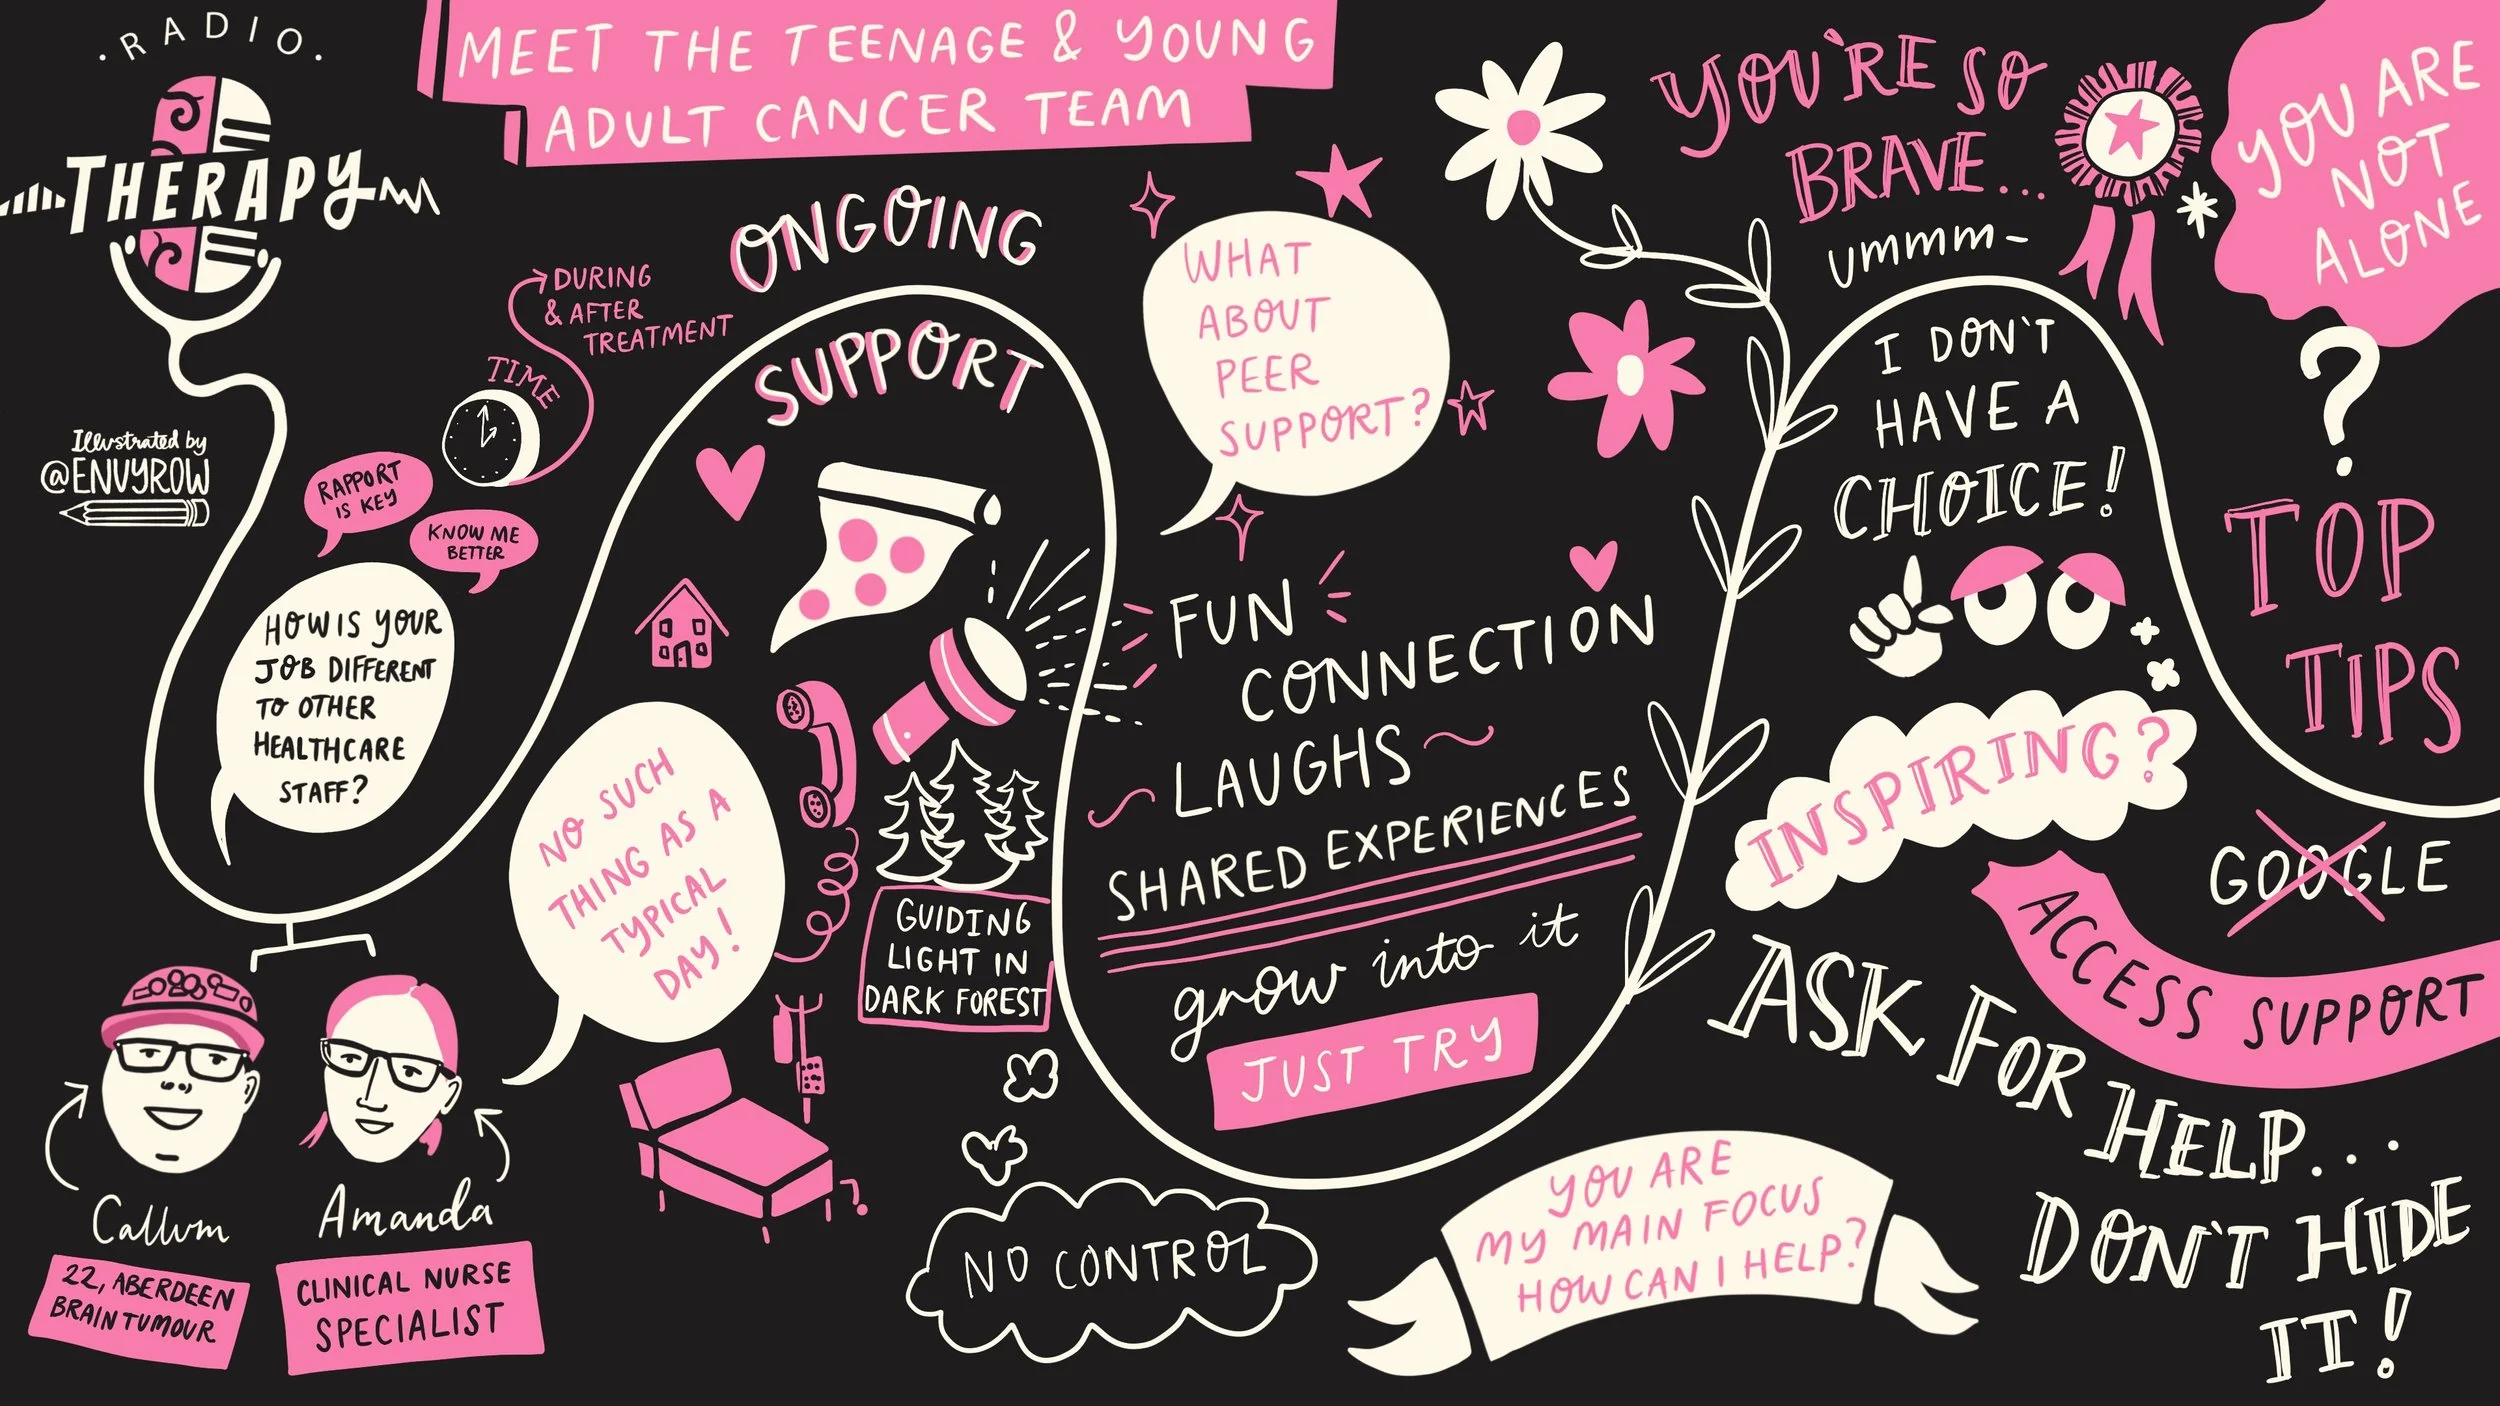 . RADIO .
THERAPY
MEET THE TEENAGE & YOUNG
ADULT CANCER TEAM
Illustrated by
@ENVYROW
TIME
DURING
& AFTER
TREATMENT
RAPPORT
IS KEY
KNOW ME
BETTER
HOW IS YOUR
JOB DIFFERENT
TO OTHER
HEALTHCARE
STAFF?
Callum
22, ABERDEEN
BRAIN TUMOUR
Amanda
CLINICAL NURSE
SPECIALIST
ONGOING
SUPPORT
NO SUCH
THING AS A
TYPICAL
DAY!
GUIDING
LIGHT IN
DARK FOREST
NO CONTROL
WHAT
ABOUT
PEER
SUPPORT?
FUN
CONNECTION
LAUGHS
SHARED EXPERIENCES
grow into it
JUST TRY
YOU ARE
MY MAIN FOCUS
HOW CAN I HELP?
YOU'RE SO
BRAVE...
ummm-
I DON'T
HAVE A
CHOICE!
INSPIRING?
YOU ARE
NOT
ALONE
?
TOP
TIPS
GOOGLE
ACCESS SUPPORT
ASK FOR HELP...
DON'T HIDE
IT!